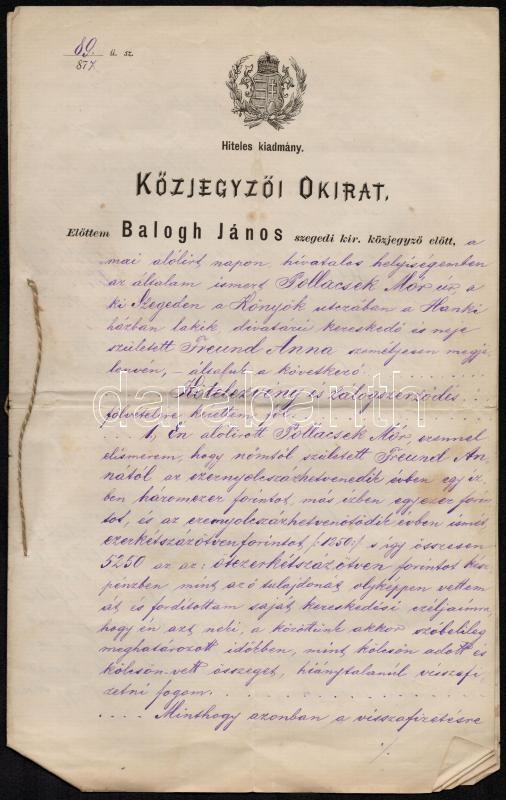 89. ü. sz.
877
Hiteles kiadmány.
KÖZJEGYZŐI OKIRAT,
Előttem Balogh János szegedi kir. közjegyző előtt, a
mai alólirt napon, hivatalos helyiségemben
az általam ismert Pollacsek Mór úr, a
ki Szegeden a Könyök utczában a Hanki
házban lakik divatárú kereskedő és neje
született Freund Anna személyesen megje-
lenvén, – általuk a következő
Kötelezvény és zálogszerződés
fölvételre kérettem föl.
1, Én alólirott Pollacsek Mór, ezennel
elismerem, hogy nőmtől született Freund An-
nától az ezernyolczszázhetvenedik évben egy iz-
ben háromezer forintot, más izben egyezer forin-
tot, és az ezernyolczszázhetvenötödik évben ismét
ezerkétszázötven forintot /:1250:/ s így összesen
5250 az az: ötezerkétszázötven forintot kész-
pénzben mint az ő tulajdonát olyképpen vettem
át és fordítottam saját kereskedési czéljaimra,
hogy én azt neki, a közöttünk akkor szóbelileg
meghatározott időkben, mint kölcsön adott és
kölcsön vett összeget, hiánytalanúl visszafi-
zetni fogom.
Minthogy azonban a visszafizetésre
./.
darabanth